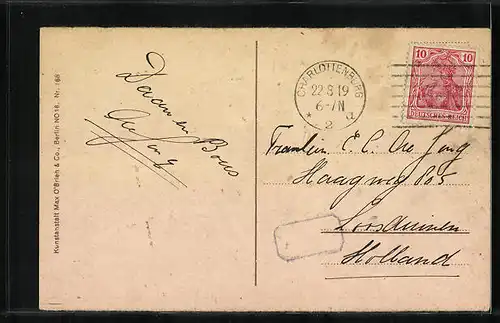 Kunstanstalt Max O'Brieh & Co., Berlin NO18, Nr. 168
de Jong
CHARLOTTENBURG
22.8.19
6-7N
* 2 a
10 10
DEUTSCHES REICH
Fräulein E. C. de Jong
Haagweg 805
Loosduinen
Holland